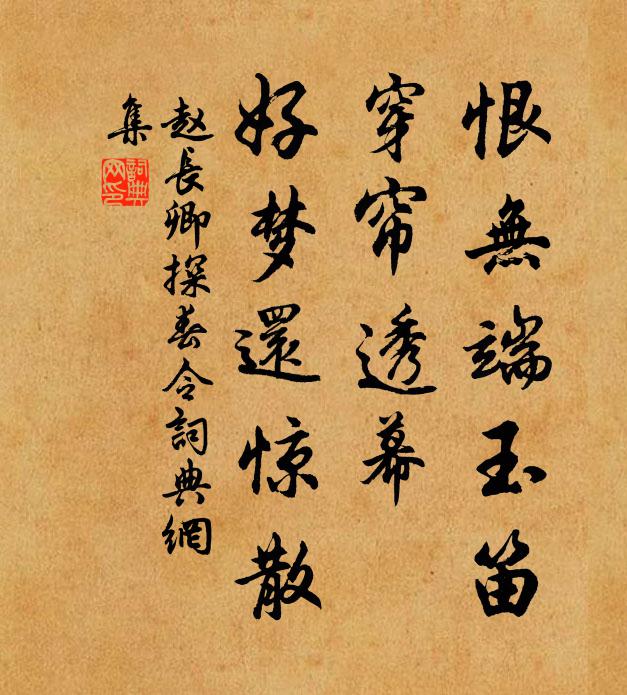 恨無端玉笛
穿帘透幕
好梦還惊散
赵長卿探春令詞典網
集
詞典
网印